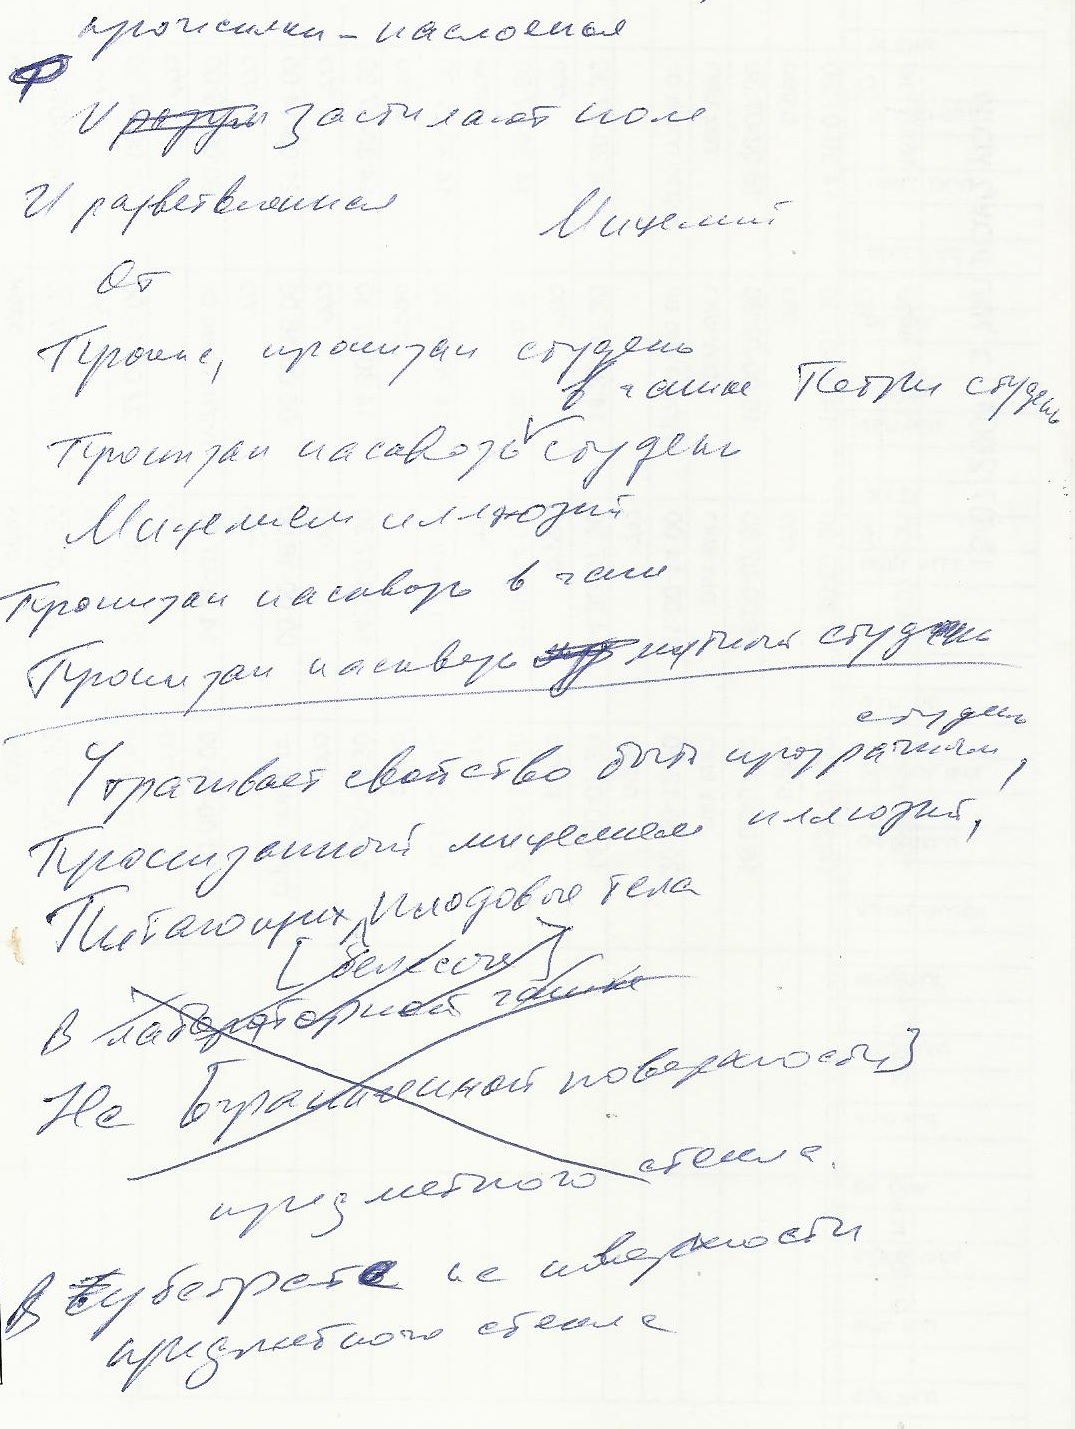 прожилки – наслоения
И застилают поле
И разветвления
Мицелий
От
Прониз, пронизан студень
в чашке Петри студень
Пронизан насквозь студень
Мицелием иллюзий
Пронизан насквозь в чаш
Пронизан насквозь мутный студень
студень
Утрачивает свойство быть прозрачным,
Пронизанный мицелием иллюзий,
Питающих плодовые тела
[белесые]
В лабораторной чашке
На [ограниченной поверхности]
предметного стекла.
В субстрате на поверхности
предметного стекла